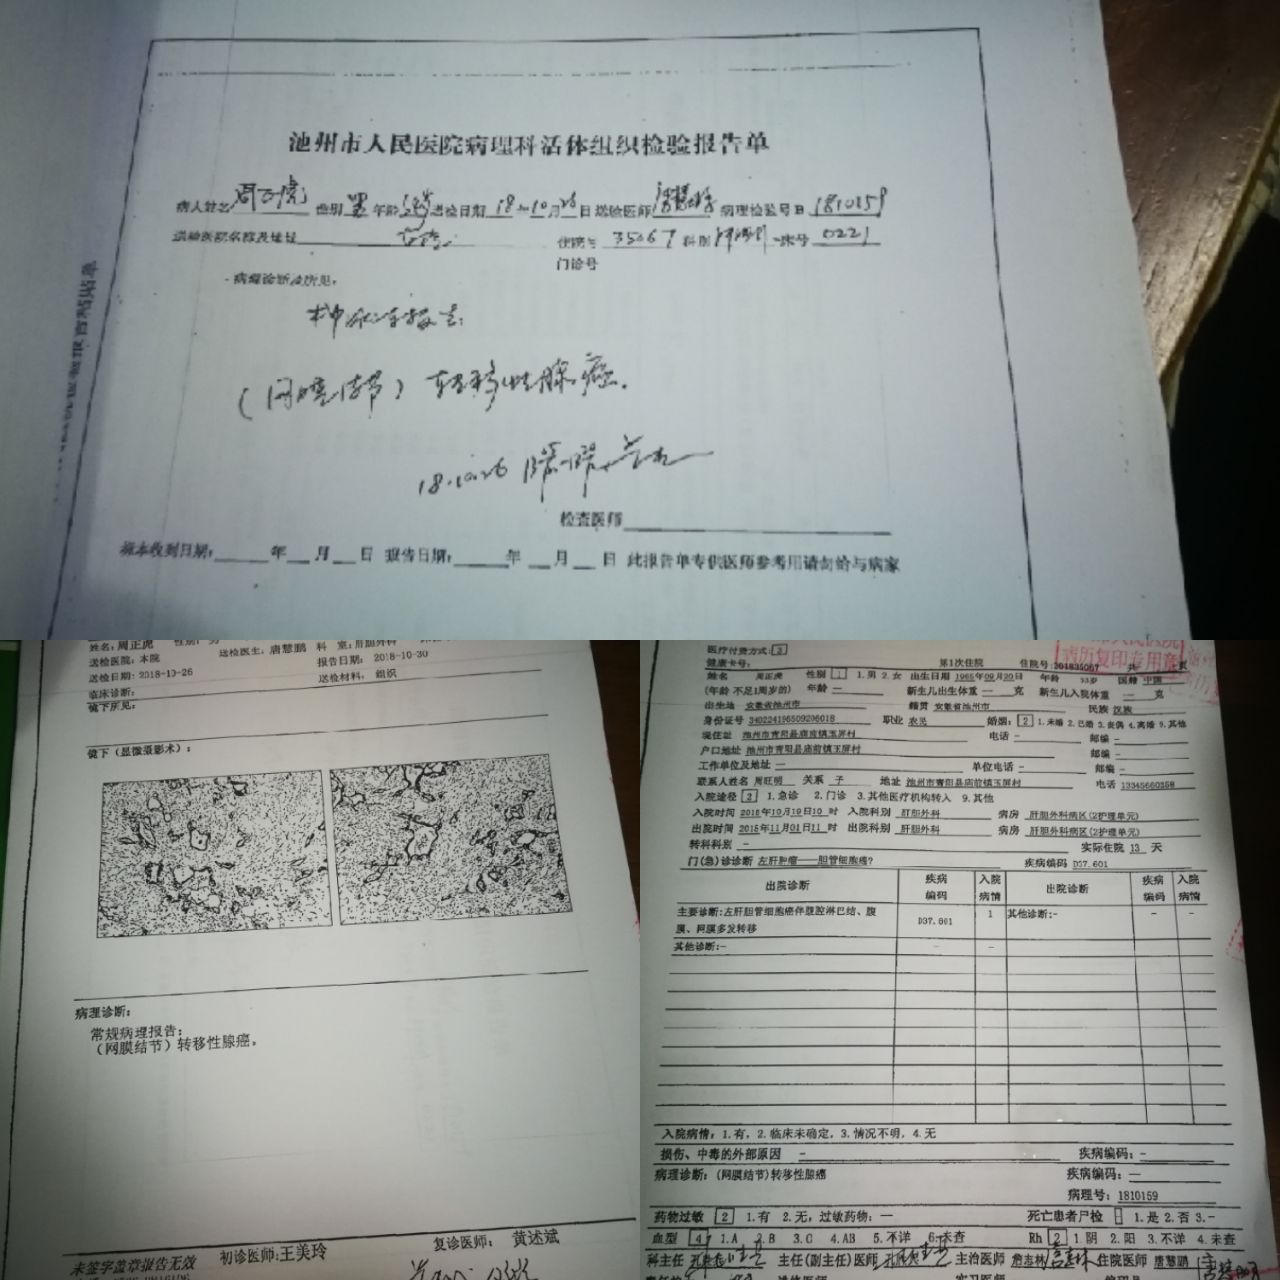 池州市人民医院病理科活体组织检验报告单
病人姓名 周正虎 性别 男 年龄 送检日期 18年10月26日 送检医师 唐慧鹏 病理检验号 1810159
送检医院名称及地址 本院 住院号 35067 科别 肝胆外 床号 0221
门诊号
病理诊断及所见:
术中冰冻报告:
(网膜结节)转移性腺癌.
18.10.26
检查医师
标本收到日期: 年 月 日 报告日期: 年 月 日 此报告单专供医师参考用请勿给与病家
姓名: 周正虎 性别: 男 送检医生: 唐慧鹏 科 室: 肝胆外科
送检医院: 本院 报告日期: 2018-10-30
送检日期: 2018-10-26 送检材料: 组织
临床诊断:
镜下所见:
镜下(显微摄影术):
病理诊断:
常规病理报告:
(网膜结节)转移性腺癌。
未签字盖章报告无效 初诊医师: 王美玲 复诊医师: 黄述斌
医疗付费方式: 3
病历复印专用章
健康卡号: 第1次住院 住院号: 201835067 页
姓名 周正虎 性别 1 1.男 2.女 出生日期 1965年09月20日 年龄 53岁 国籍 中国
(年龄 不足1周岁的) 年龄 — 新生儿出生体重 — 克 新生儿入院体重 — 克
出生地 安徽省池州市 籍贯 安徽省池州市 民族 汉族
身份证号 340224196509206018 职业 农民 婚姻: 2 1.未婚 2.已婚 3.丧偶 4.离婚 9.其他
现住址 池州市青阳县庙前镇玉屏村 电话 - 邮编 -
户口地址 池州市青阳县庙前镇玉屏村 邮编 -
工作单位及地址 — 单位电话 - 邮编 -
联系人姓名 周旺明 关系 子 地址 池州市青阳县庙前镇玉屏村 电话 13345660258
入院途径 2 1.急诊 2.门诊 3.其他医疗机构转入 9.其他
入院时间 2018年10月19日10时 入院科别 肝胆外科 病房 肝胆外科病区(2护理单元)
出院时间 2018年11月01日11时 出院科别 肝胆外科 病房 肝胆外科病区(2护理单元)
转科科别 - 实际住院 13 天
门(急)诊诊断 左肝肿瘤——胆管细胞癌? 疾病编码 D37.601
出院诊断 疾病编码 入院病情 出院诊断 疾病编码 入院病情
主要诊断:左肝胆管细胞癌伴腹腔淋巴结、腹膜、网膜多发转移 D37.601 1 其他诊断:- - -
其他诊断:- - -
入院病情: 1.有, 2.临床未确定, 3.情况不明, 4.无
损伤、中毒的外部原因 - 疾病编码: -
病理诊断: (网膜结节)转移性腺癌 疾病编码: —
病理号: 1810159
药物过敏 2 1.有 2.无, 过敏药物: — 死亡患者尸检 1.是 2.否 3.-
血型 4 1.A 2.B 3.O 4.AB 5.不详 6.未查 Rh 2 1.阴 2.阳 3.不详 4.未查
科主任 主任(副主任)医师 主治医师 詹志林 住院医师 唐慧鹏